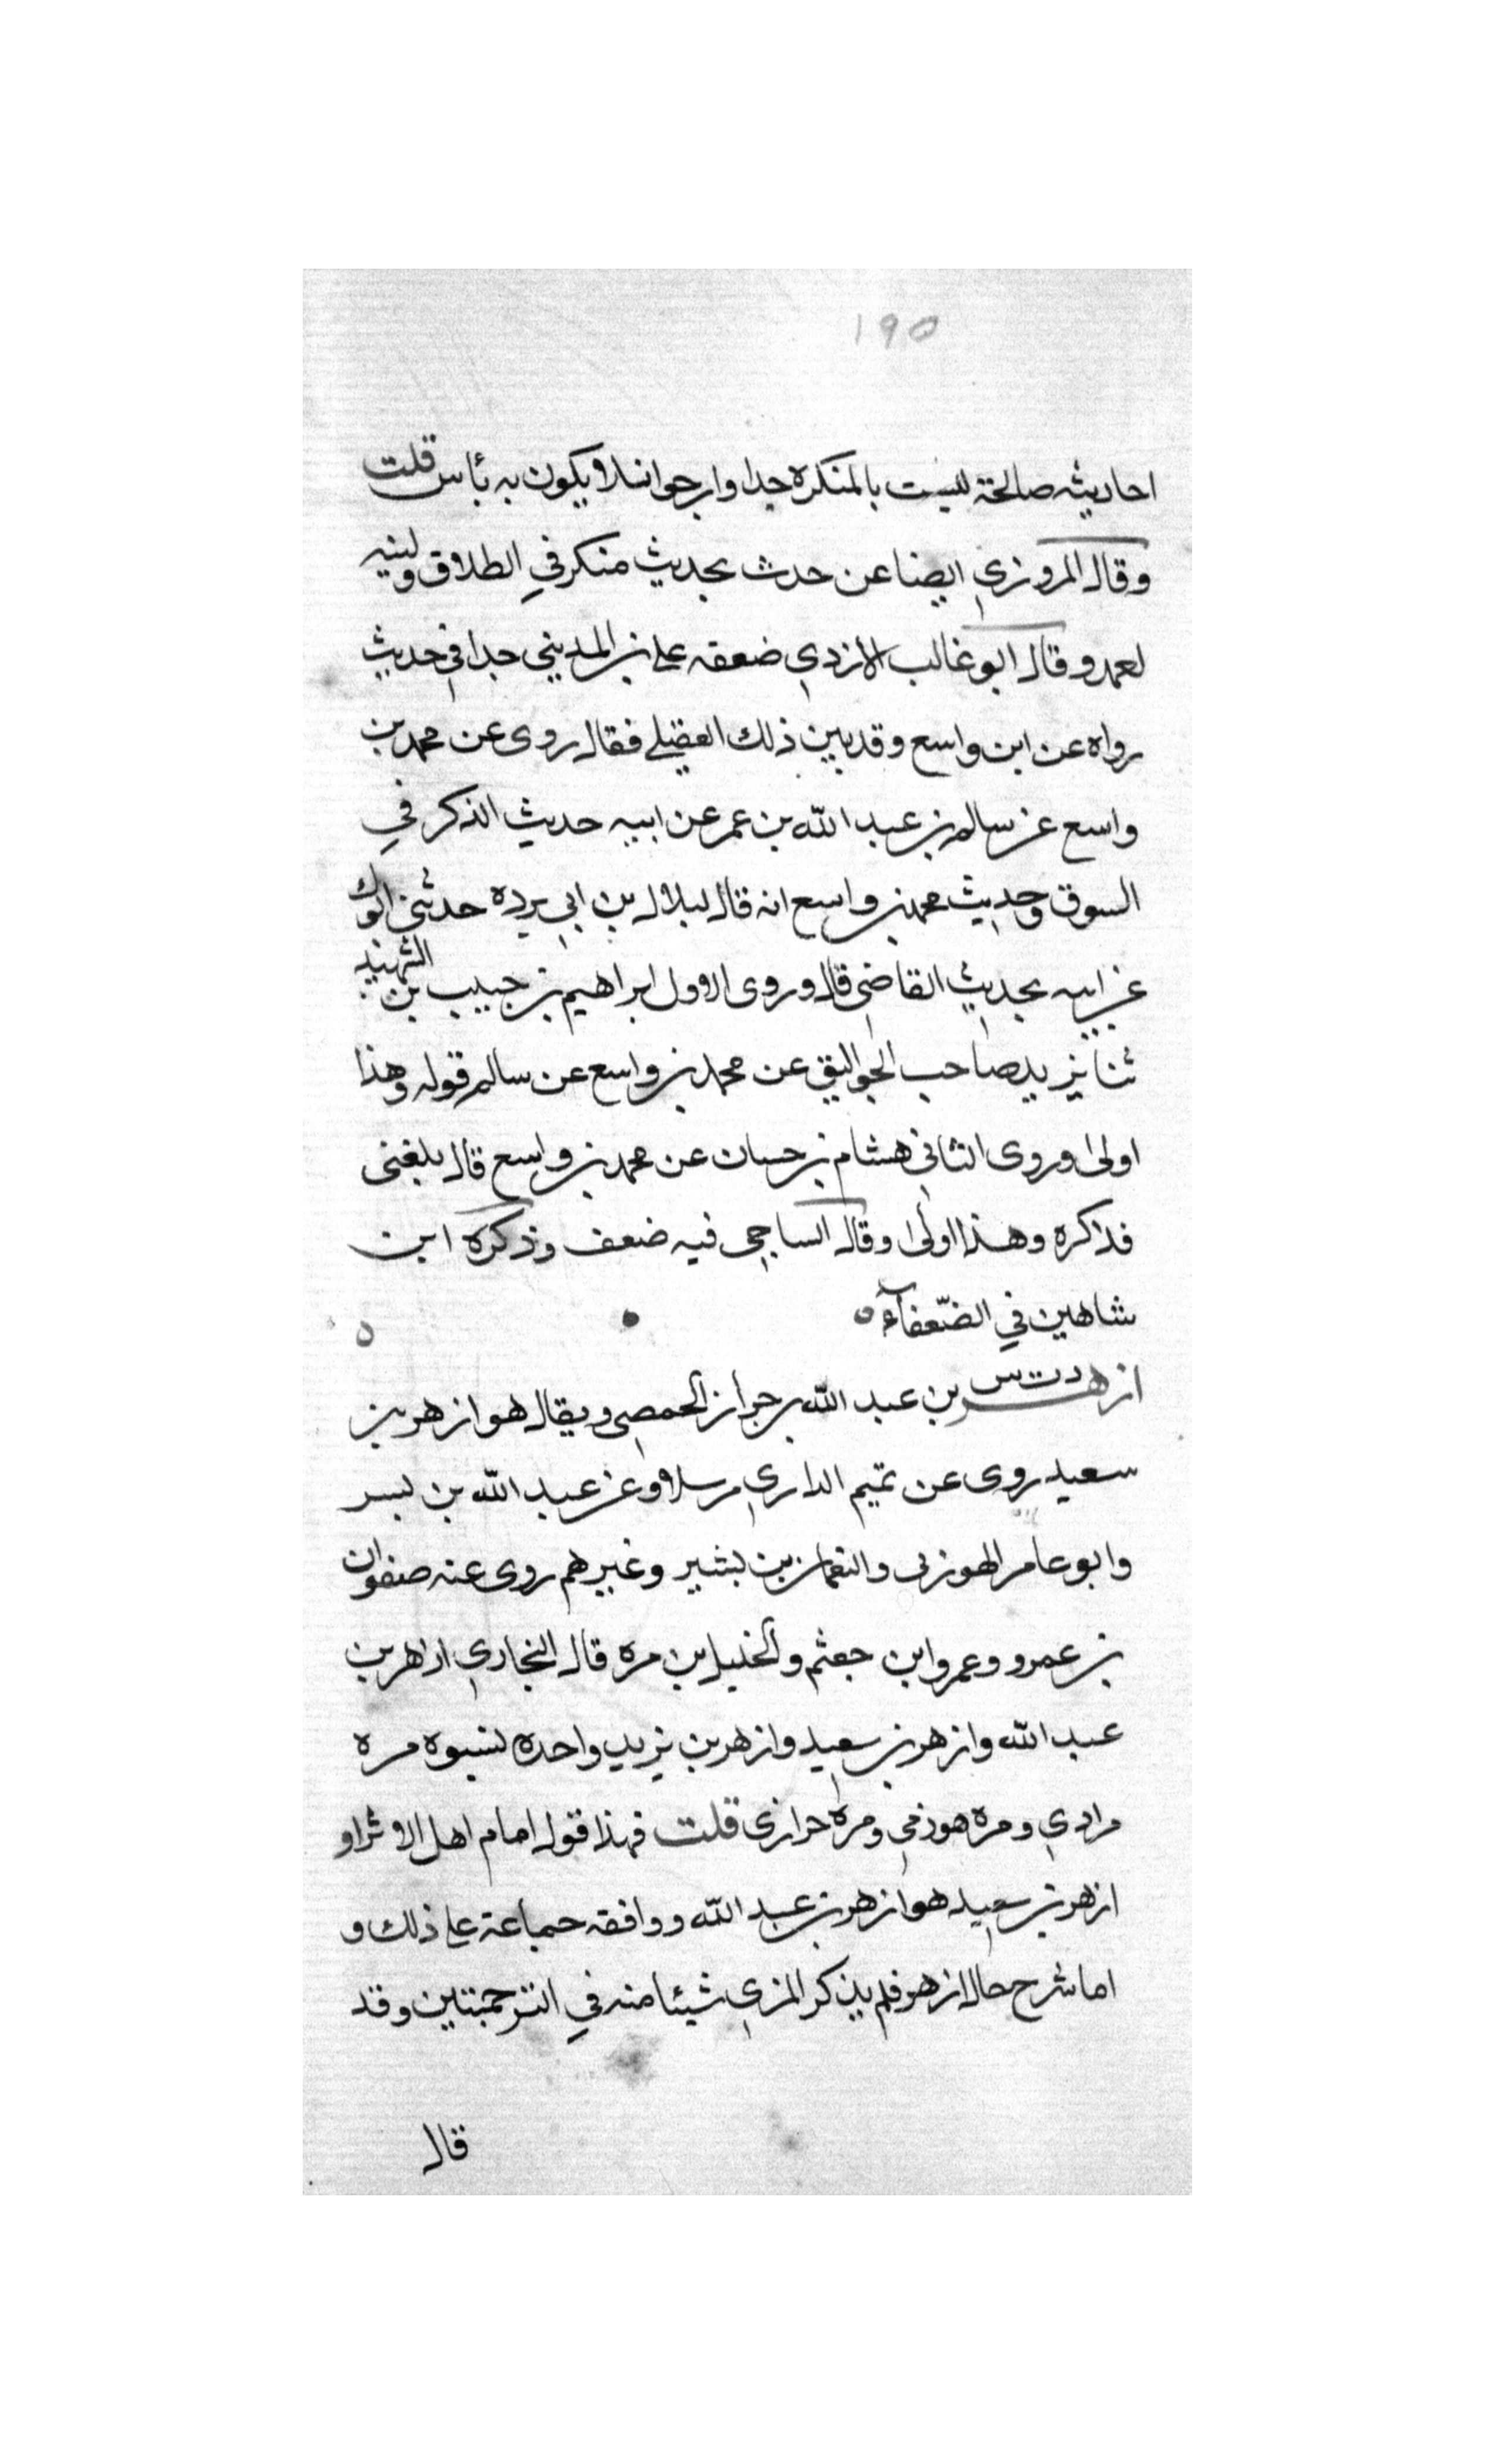 ١٩٥
احاديثه صالحة ليست بالمنكره جدا وارجوا انه لا يكون به بأس قلت
وقال المروزي ايضا عن حدث بحديث منكر في الطلاق ولينه
لعمد وقال ابو غالب الازدي ضعفه علي بن المديني جدا في حديث
رواه عن ابن واسع وقد بين ذلك العقيلي فقال روى عن محمد بن
واسع عن سالم بن عبد الله بن عمر عن ابيه حديث الذكر في
السوق وحديث محمد بن واسع انه قال لبلال بن ابي برده حدثني ابوك
عن ابيه بحديث القاضي قال وروى الاول ابراهيم بن حبيب بن الشهيد
ثنا يزيد صاحب الجواليق عن محمد بن واسع عن سالم قوله وهذا
اولى وروى الثاني هشام بن حسان عن محمد بن واسع قال بلغني
فذكره وهذا اولى وقال الساجي فيه ضعف وذكره ابن
شاهين في الضّعفآء
ازهر دت س بن عبد الله بن حراز الحمصي ويقال هو ازهر بن
سعيد روى عن تميم الداري مرسلا وعن عبد الله بن بسر
وابو عامر الهوزني والنعمان بن بشير وغيرهم روى عنه صفوان
بن عمرو وعمرو ابن جعثم والخليل بن مره قال البخاري ازهر بن
عبد الله وازهر بن سعيد وازهر بن يزيد واحده نسبوه مره
مرادي ومره هوزمي ومره حرازى قلت فهذا قول امام اهل الاثر او
ازهر بن سعيد هو ازهر بن عبد الله ووافقه جماعة على ذلك و
اما شرح حال ازهر فلم يذكر المزي شيئا منه في الترجمتين وقد
قال